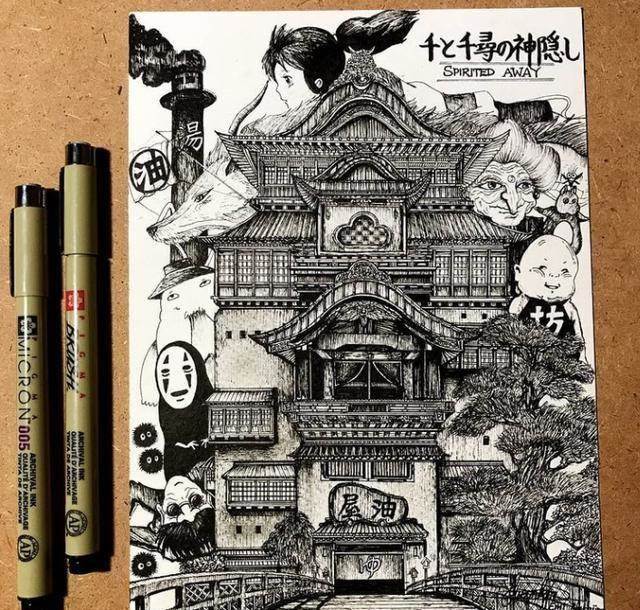 千と千尋の神隠し
SPIRITED AWAY
湯
油
坊
屋油
ゆ
PIGMA
MICRON 005
ARCHIVAL INK
QUALITÉ D'ARCHIVAGE
TINTA DE ARCHIVO
AP
PIGMA
BRUSH
ARCHIVAL INK
QUALITÉ D'ARCHIVAGE
TINTA DE ARCHIVO
AP